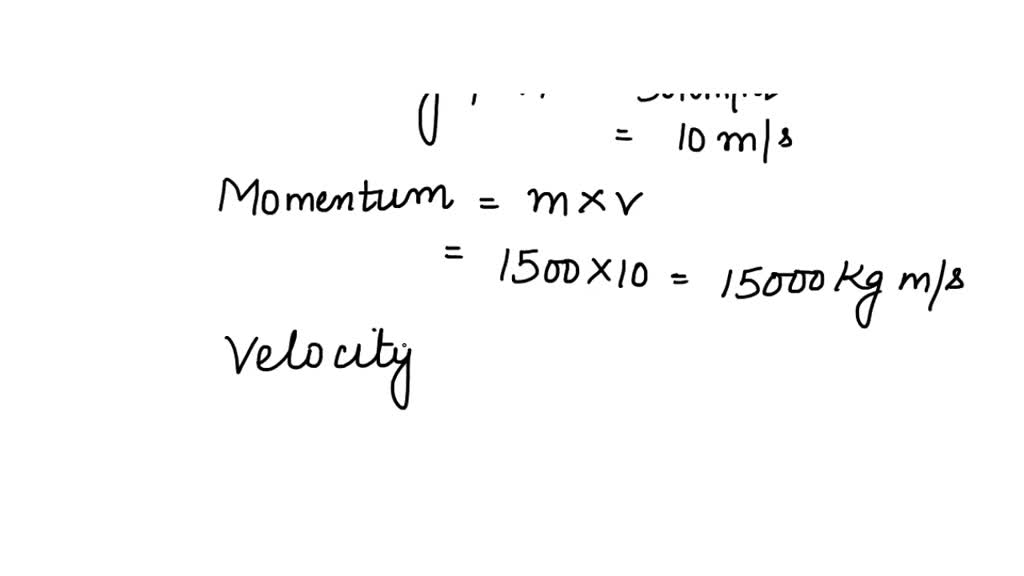 = 10 m/s
Momentum = m × v
= 1500 × 10 = 15000 Kg m/s
Velocity